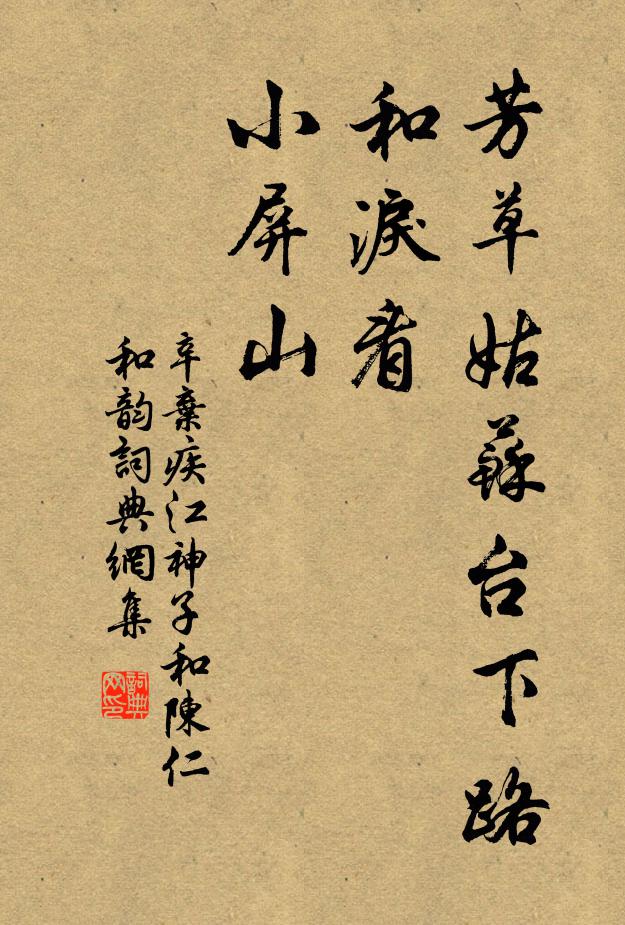 芳草姑蘇台下路
和淚看
小屏山
辛棄疾江神子和陳仁
和韵詞典網集
詞典
网印